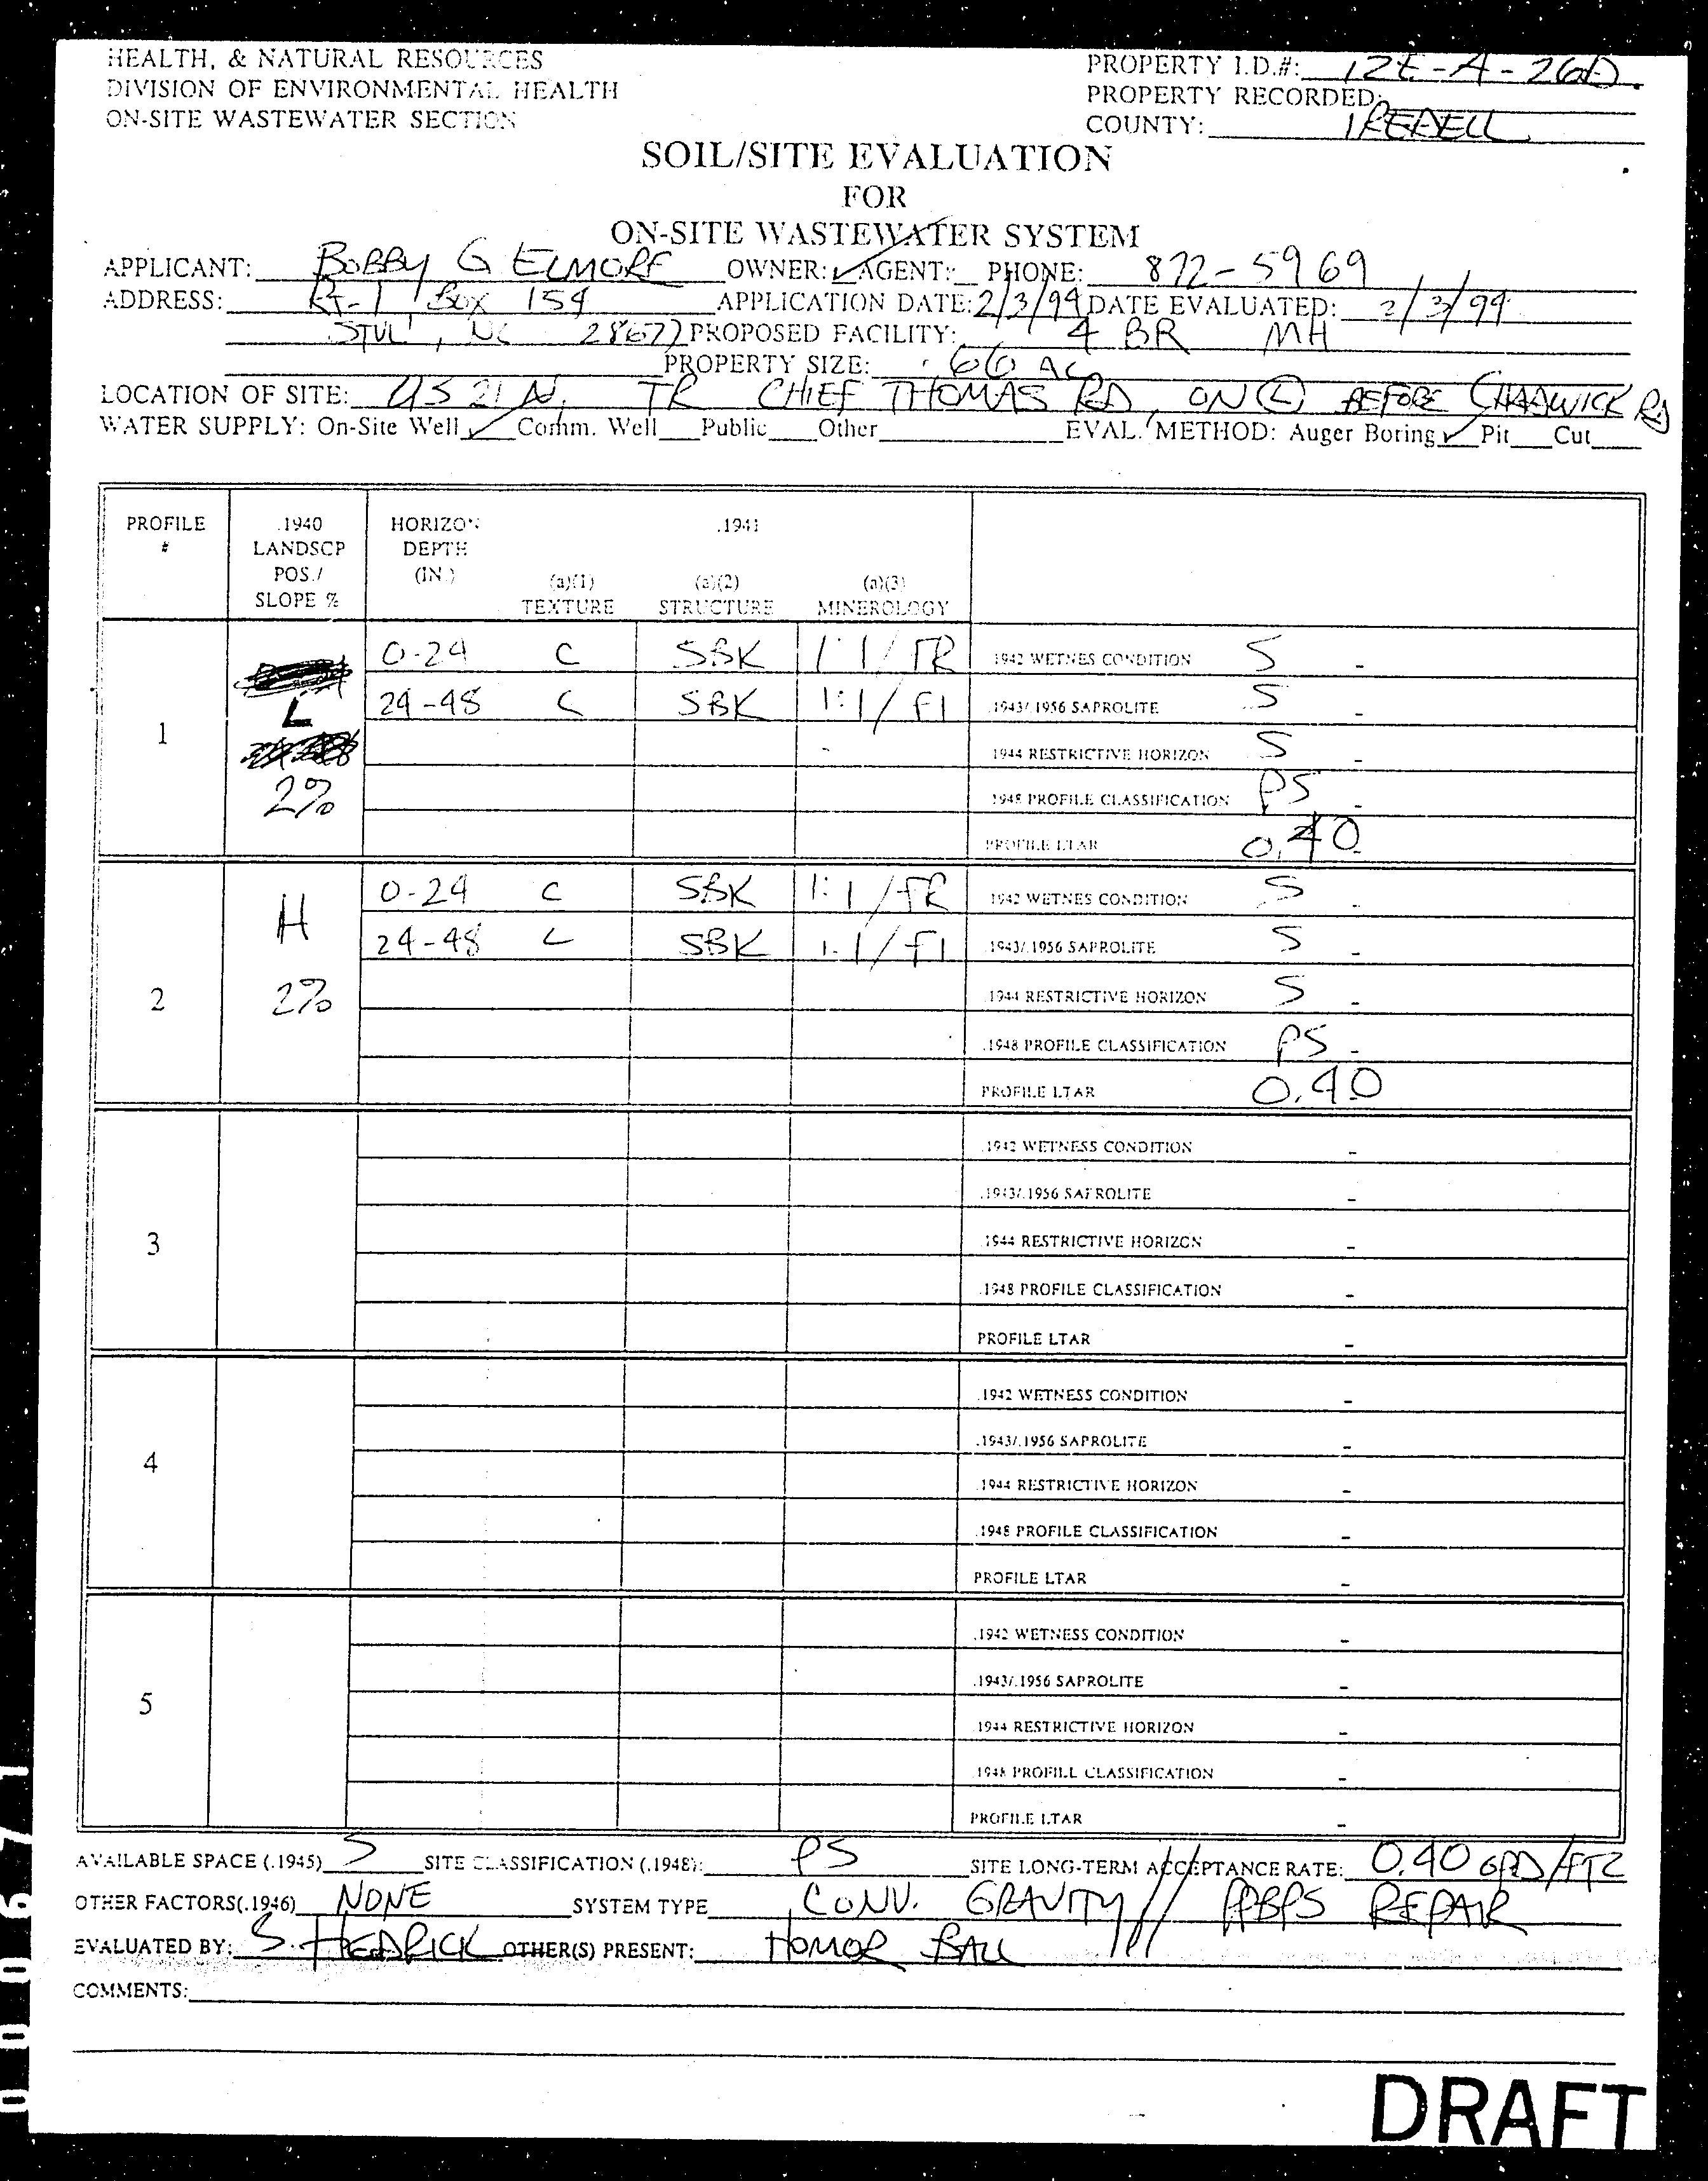 HEALTH, & NATURAL RESOURCES
DIVISION OF ENVIRONMENTAL HEALTH
ON-SITE WASTEWATER SECTION
PROPERTY I.D.#: 12E-A-26D
PROPERTY RECORDED:
COUNTY: IREDELL
SOIL/SITE EVALUATION
FOR
ON-SITE WASTEWATER SYSTEM
APPLICANT: BOBBY G ELMORE OWNER: ✓ AGENT: PHONE: 872-5969
ADDRESS: RT-1 BOX 154 APPLICATION DATE: 2/3/94 DATE EVALUATED: 2/3/94
STVL, NC 28677 PROPOSED FACILITY: 4 BR MH
PROPERTY SIZE: .66 AC
LOCATION OF SITE: US 21 N, TR CHIEF THOMAS RD, ON (L) BEFORE CHADWICK RD
WATER SUPPLY: On-Site Well ✓ Comm. Well Public Other EVAL. METHOD: Auger Boring ✓ Pit Cut
PROFILE # .1940 LANDSCP POS./ SLOPE % HORIZON DEPTH (IN.) .1941 (a)(1) TEXTURE (a)(2) STRUCTURE (a)(3) MINEROLOGY
1 L 2%
0-24 C SBK 1:1/FR .1942 WETNES CONDITION S -
24-48 C SBK 1:1/FI .1943/.1956 SAPROLITE S -
.1944 RESTRICTIVE HORIZON S -
.1948 PROFILE CLASSIFICATION PS -
PROFILE LTAR 0.40
2 H 2%
0-24 C SBK 1:1/FR .1942 WETNES CONDITION S -
24-48 C SBK 1:1/FI .1943/.1956 SAPROLITE S -
.1944 RESTRICTIVE HORIZON S -
.1948 PROFILE CLASSIFICATION PS -
PROFILE LTAR 0.40
3
.1942 WETNESS CONDITION -
.1943/.1956 SAPROLITE -
.1944 RESTRICTIVE HORIZON -
.1948 PROFILE CLASSIFICATION -
PROFILE LTAR -
4
.1942 WETNESS CONDITION -
.1943/.1956 SAPROLITE -
.1944 RESTRICTIVE HORIZON -
.1948 PROFILE CLASSIFICATION -
PROFILE LTAR -
5
.1942 WETNESS CONDITION -
.1943/.1956 SAPROLITE -
.1944 RESTRICTIVE HORIZON -
.1948 PROFILE CLASSIFICATION -
PROFILE LTAR -
AVAILABLE SPACE (.1945) S SITE CLASSIFICATION (.1948): PS SITE LONG-TERM ACCEPTANCE RATE: 0.40 GPD/FT2
OTHER FACTORS(.1946) NONE SYSTEM TYPE CONV. GRAVITY // PPBPS REPAIR
EVALUATED BY: S. HEDRICK OTHER(S) PRESENT: HOMOR BALL
COMMENTS:
DRAFT